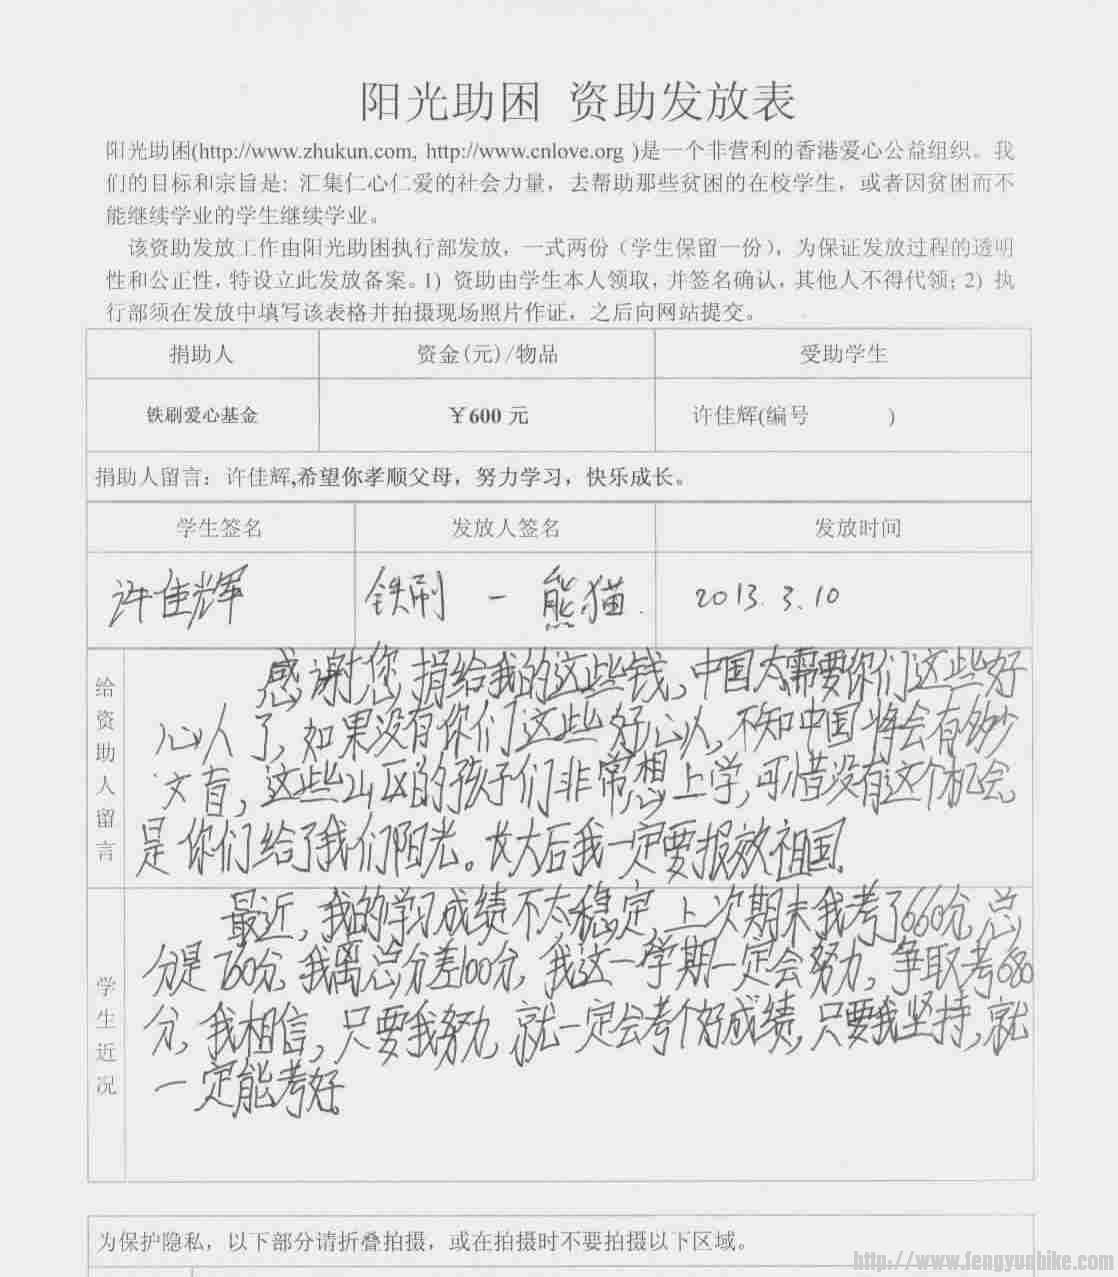 阳光助困 资助发放表
阳光助困(http://www.zhukun.com, http://www.cnlove.org )是一个非营利的香港爱心公益组织。我
们的目标和宗旨是: 汇集仁心仁爱的社会力量，去帮助那些贫困的在校学生，或者因贫困而不
能继续学业的学生继续学业。
该资助发放工作由阳光助困执行部发放，一式两份（学生保留一份），为保证发放过程的透明
性和公正性，特设立此发放备案。1）资助由学生本人领取，并签名确认，其他人不得代领；2）执
行部须在发放中填写该表格并拍摄现场照片作证，之后向网站提交。
捐助人 资金(元)/物品 受助学生
铁刷爱心基金 ￥600 元 许佳辉(编号 )
捐助人留言：许佳辉,希望你孝顺父母，努力学习，快乐成长。
学生签名 发放人签名 发放时间
许佳辉 铁刷 － 熊猫. 2013.3.10
给资助人留言
感谢您捐给我的这些钱,中国太需要你们这些好
心人了,如果没有你们这些好心人,不知中国将会有多少
文盲,这些山区的孩子们非常想上学,可惜没有这个机会,
是你们给了我们阳光。长大后我一定要报效祖国.
学生近况
最近,我的学习成绩不太稳定,上次期末我考了660分,总
分是760分,我离总分差100分,我这一学期一定会努力,争取考680
分,我相信,只要我努力,就一定会考个好成绩,只要我坚持,就
一定能考好。
为保护隐私，以下部分请折叠拍摄，或在拍摄时不要拍摄以下区域。
http://www.fengyunbike.com